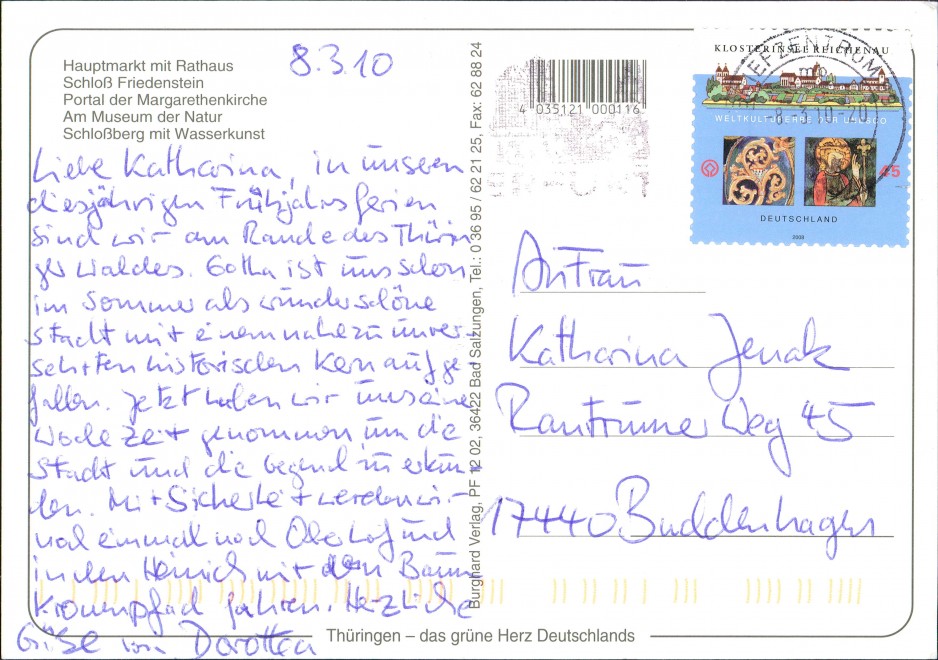 Hauptmarkt mit Rathaus
Schloß Friedenstein
Portal der Margarethenkirche
Am Museum der Natur
Schloßberg mit Wasserkunst
8.3.10
Liebe Katharina, in unseren
diesjährigen Frühjahrsferien
sind wir am Rande des Thürin
ger Waldes. Gotha ist uns schon
im Sommer als wunderschöne
Stadt mit einem nahezu unver-
sehrten historischen Kern aufge
fallen. Jetzt haben wir uns eine
Woche Zeit genommen um die
Stadt und die Gegend zu erkun
den. Mit Sicherheit werden wir
noch einmal nach Oberhof und
in den Hainich mit dem Baum
Kronenpfad fahren. Herzliche
Grüße von Dorothea
Burghard Verlag, PF 12 02, 36422 Bad Salzungen, Tel.: 0 36 95 / 62 21 25, Fax: 62 88 24
4 035121 000116
KLOSTERINSEL REICHENAU
WELTKULTURERBE DER UNESCO
45
DEUTSCHLAND
2008
BRIEFZENTRUM
An Frau
Katharina Jenak
Weg 45
17440 Buddenhagen
Thüringen – das grüne Herz Deutschlands